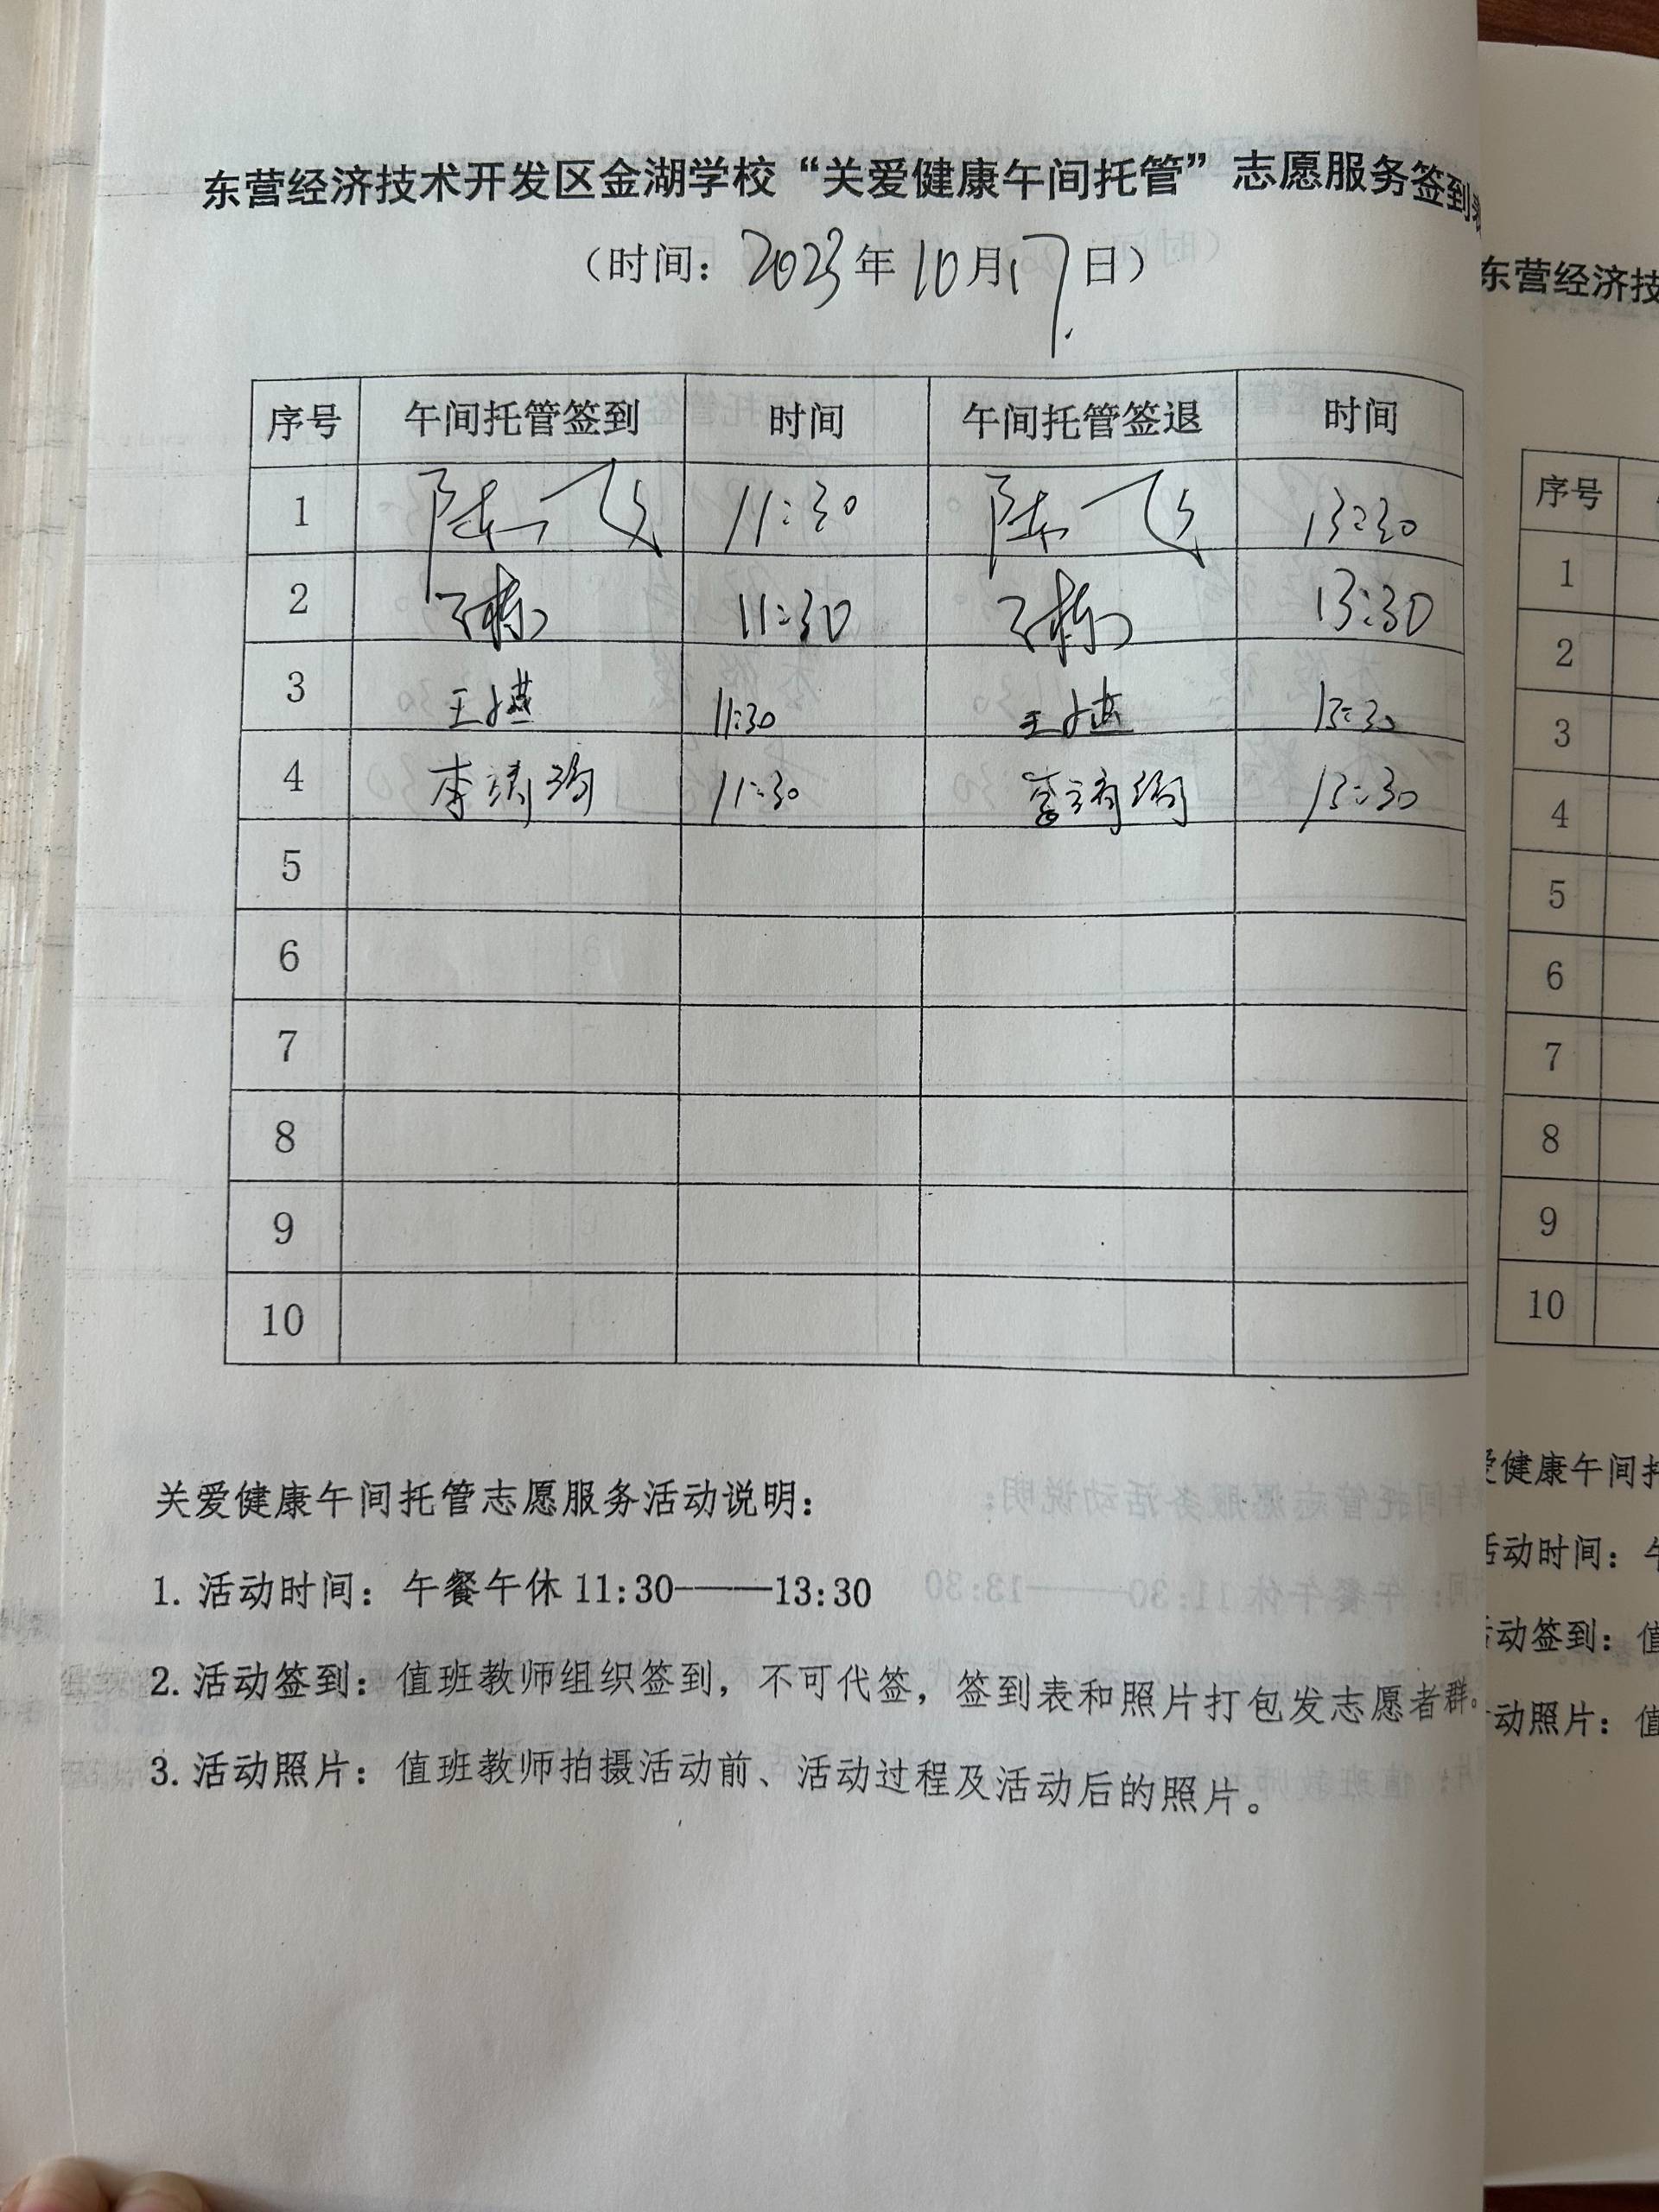 东营经济技术开发区金湖学校“关爱健康午间托管”志愿服务签到表
(时间: 2023年10月17日)
序号 午间托管签到 时间 午间托管签退 时间
1 陆飞 11:30 陆飞 13:30
2 11:30 13:30
3 王 11:30 王 13:30
4 李靖 11:30 李靖 13:30
5
6
7
8
9
10
关爱健康午间托管志愿服务活动说明:
1. 活动时间: 午餐午休11:30——13:30
2. 活动签到: 值班教师组织签到, 不可代签, 签到表和照片打包发志愿者群。
3. 活动照片: 值班教师拍摄活动前、活动过程及活动后的照片。
东营经济技
序号
1
2
3
4
5
6
7
8
9
10
爱健康午间托
活动时间: 午
活动签到: 值
动照片: 值